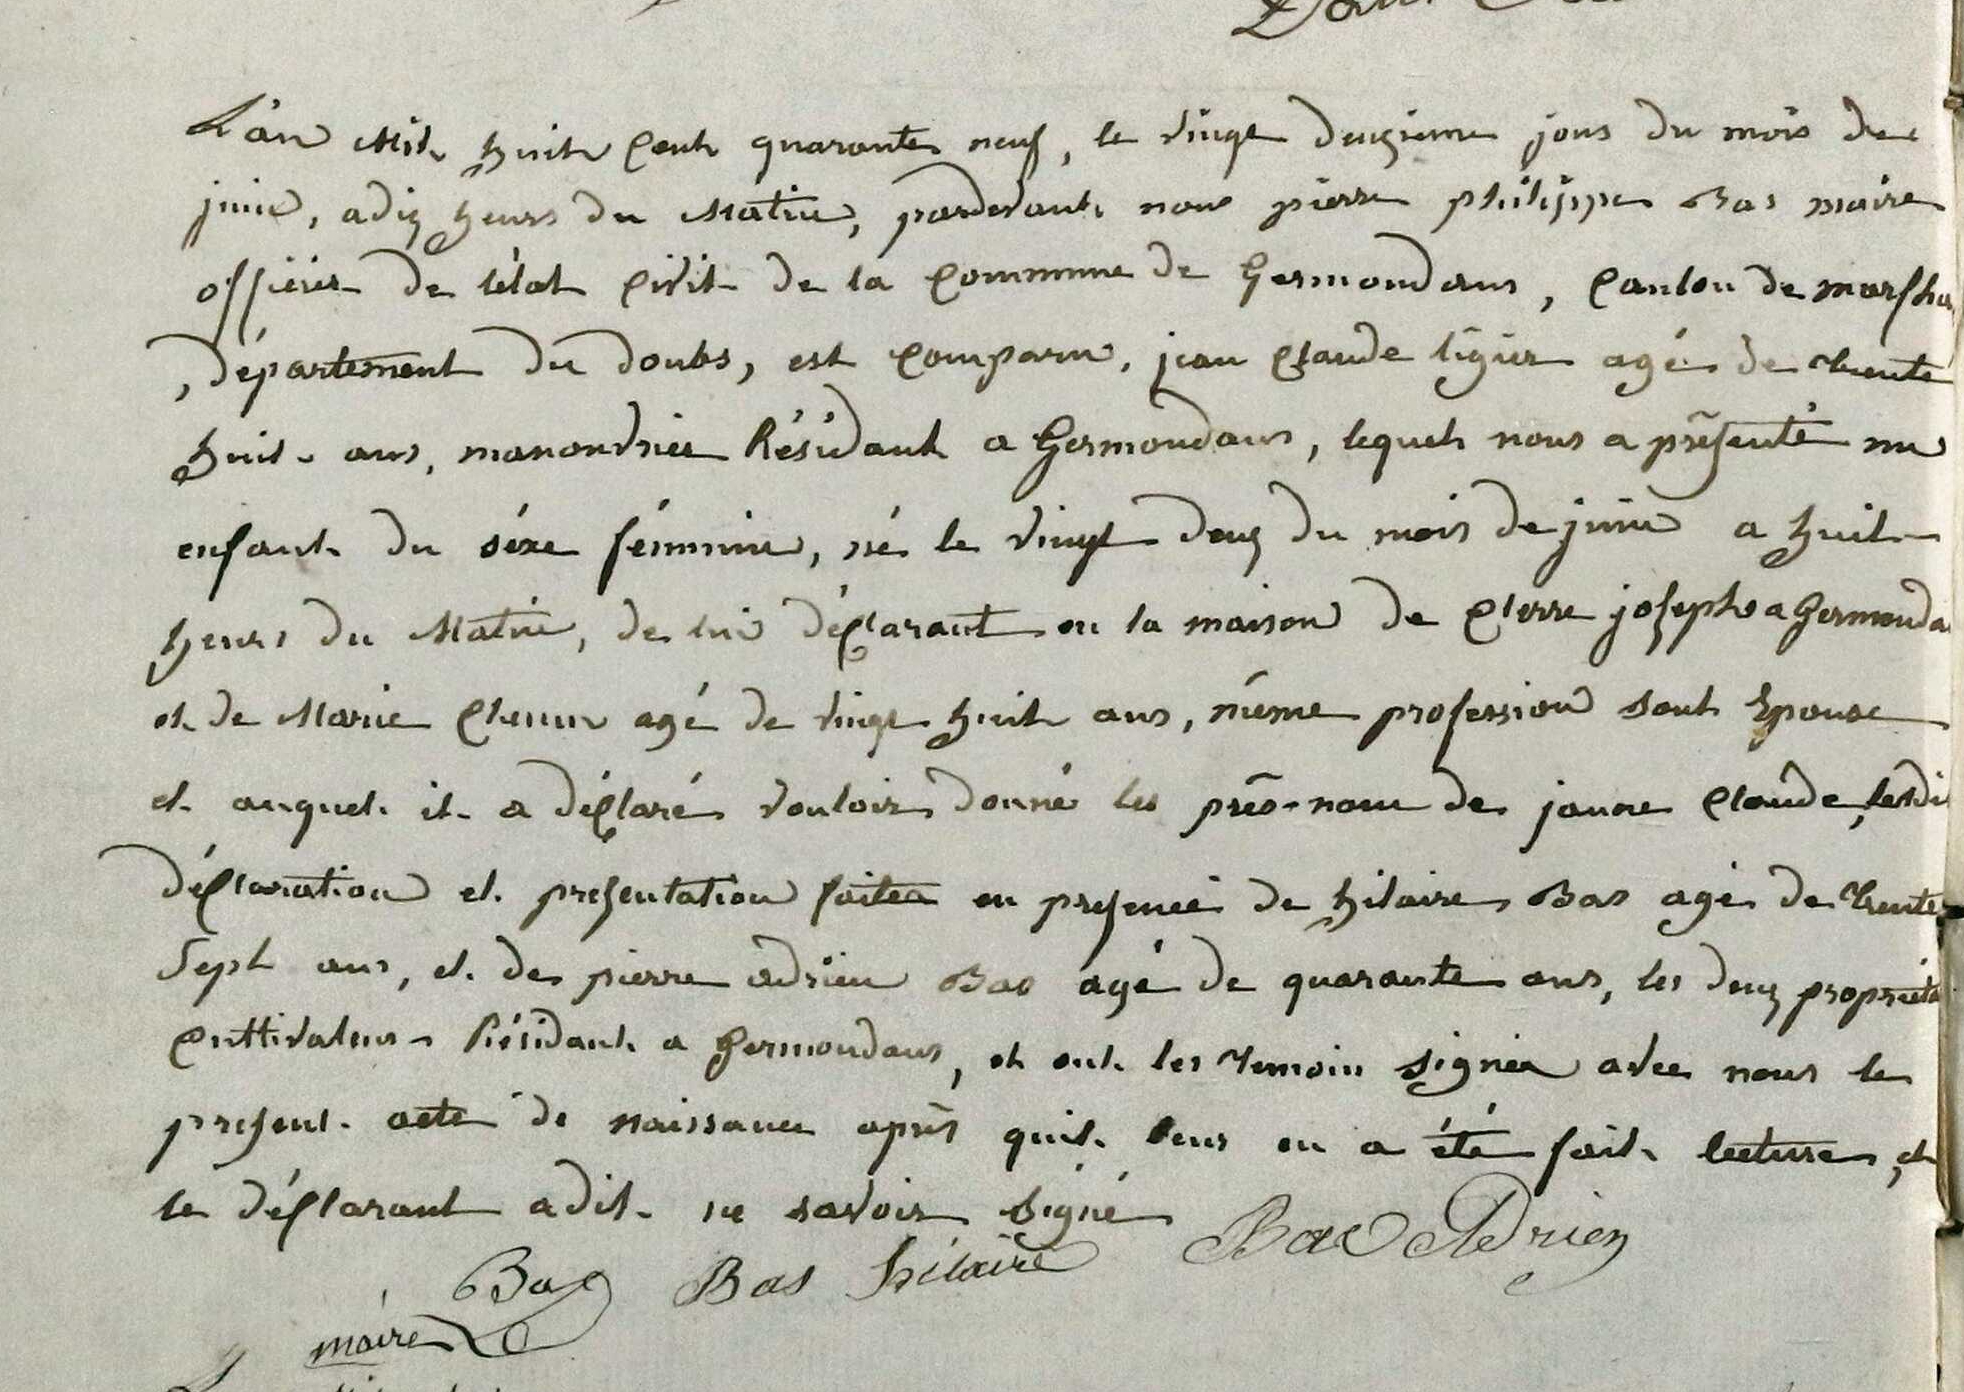 L'an Mil huit Cent quarante neuf, le vingt deuzieme jour du mois de
juin, a diz heurs du Matin, pardevant nous pierre philippe Bas maire
officier de létat Civil de la Commune de Germondans, Canton de marcha
, département du doubs, est Comparu, jean Claude ligier agé de trente
huit ans, manouvrier Résidant a Germondans, lequel nous a présenté un
enfant du séxe féminin, né le vingt deuz du mois de juin a huit
heurs du Matin, de lui déclarant en la maison de Clerre joseph a Germonda
et de Marie agé de vingt huit ans, méme profession sont Epouse
et auquel il a déclaré vouloir donné les pré-nom de jeanne Claude, lesdi
déclaration et presentation faites en presence de hilaire Bas agé de trente
Sept ans, et de pierre adrien Bas agé de quarante ans, les deuz propriéta
Culttivateur Résidant a Germondans, et ont les temoin signés avec nous le
present acte de naissance aprés quil leur en a été fait lecture, et
le déclarant a dit ne savoir signé
Bas Bas hilaire Bas ADrien
maire